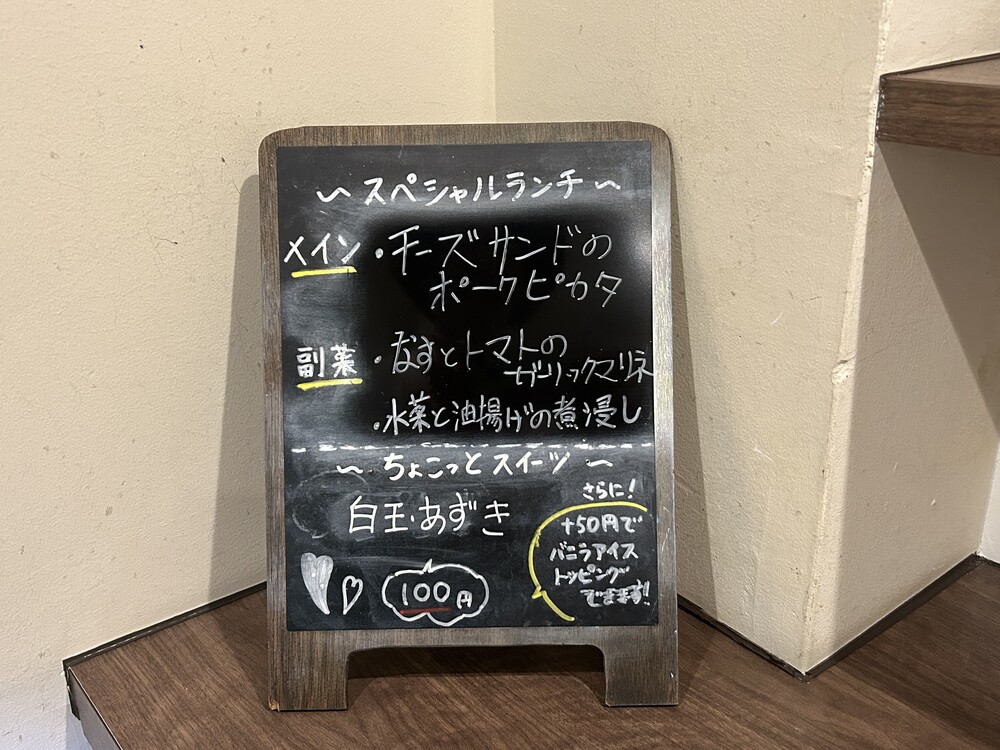 ～スペシャルランチ～
メイン ・チーズサンドの
ポークピカタ
副菜 ・なすとトマトの
ガーリックマリネ
・水菜と油揚げの煮浸し
～ちょこっとスイーツ～
白玉・あずき
100円
さらに!
+50円で
バニラアイス
トッピング
できます!